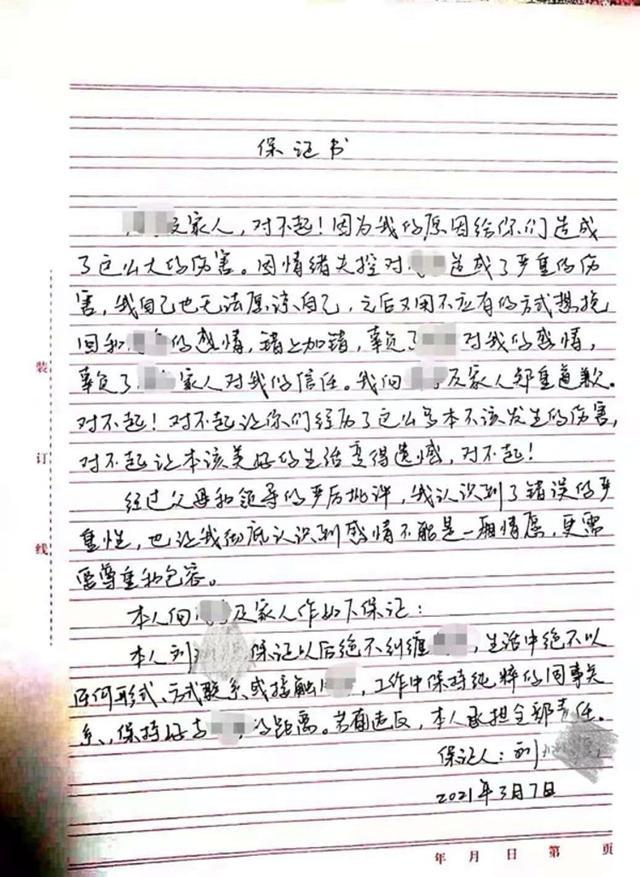 保证书
及家人，对不起！因为我的原因给你们造成
了这么大的伤害。因情绪失控对 造成了严重的伤
害，我自己也无法原谅自己，之后又用不应有的方式想挽
回和 的感情，错上加错，辜负了 对我的感情，
辜负了 家人对我的信任。我向 及家人郑重道歉。
对不起！对不起让你们经历了这么多本不该发生的伤害，
对不起让本该美好的生活变得遗憾，对不起！
经过父母和领导的严厉批评，我认识到了错误的严
重性，也让我彻底认识到感情不能是一厢情愿，更需
要尊重和包容。
本人向 及家人作如下保证：
本人刘 保证以后绝不纠缠 ，生活中绝不以
任何形式、方式联系或接触 ，工作中保持纯粹的同事关
系，保持好与 的距离。若有违反，本人承担全部责任。
保证人：刘
2021年3月7日
装
订
线
年 月 日 第 页